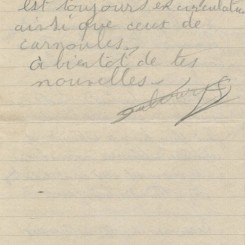 est toujours en circulation
ainsi que ceux de
carnoules.
à bientôt de tes
nouvelles